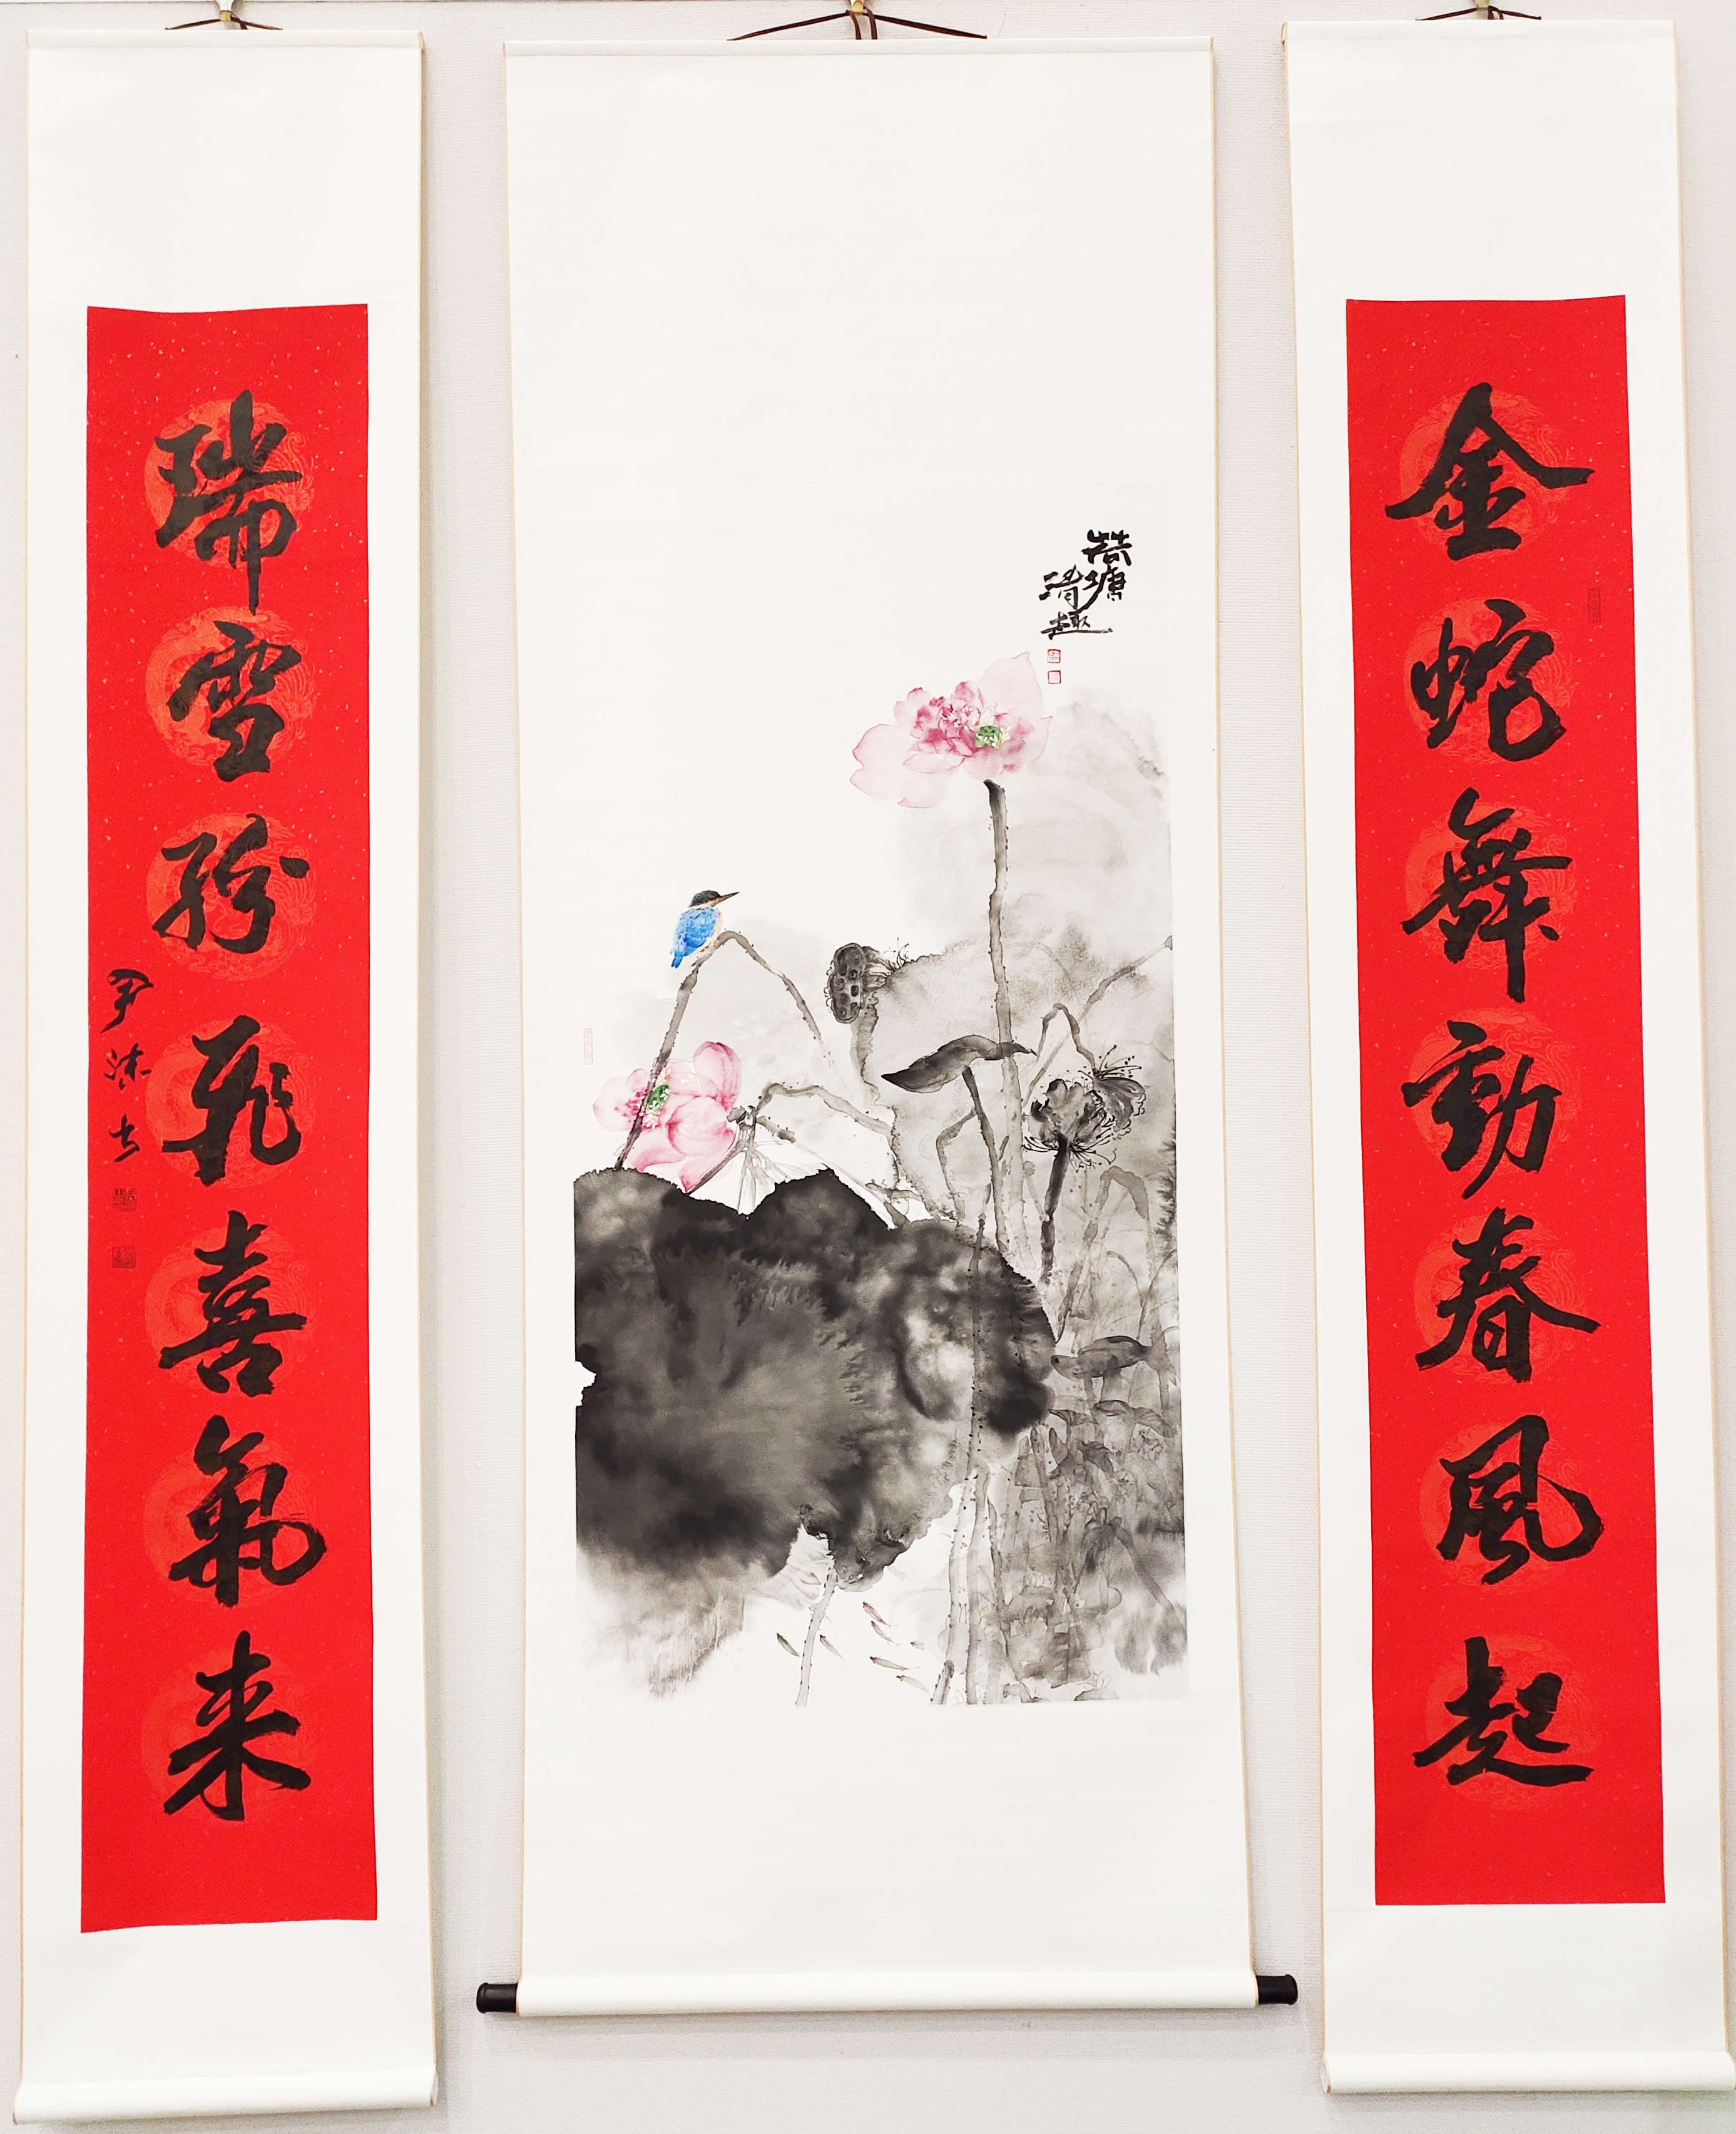 金蛇舞動春風起
荷塘
清趣
瑞雪紛飛喜氣来